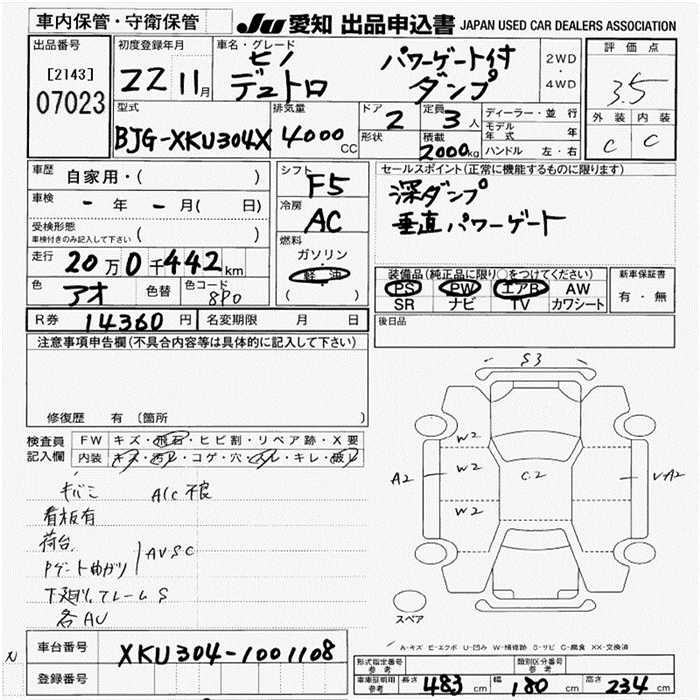 車内保管・守衛保管
JU 愛知 出品申込書 JAPAN USED CAR DEALERS ASSOCIATION
出品番号
[2143]
07023
初度登録年月
22 11月
車名・グレード
ヒノ
デュトロ
パワーゲート付
ダンプ
2WD
・
4WD
評価点
3.5
外装 内装
C C
型式
BJG-XKU304X
排気量
4000 CC
ドア 2
形状
定員 3 人
積載 2000kg
ディーラー・並行
モデル年式 年
ハンドル 左・右
車歴 自家用・( )
車検 - 年 - 月( 日)
受検形態
車検付きのみ記入して下さい ( )
走行 20万0千442km
色 アオ 色替 色コード 8P0
シフト F5
冷房 AC
燃料
ガソリン
軽油
( )
セールスポイント(正常に機能するものに限ります)
深ダンプ
垂直パワーゲート
装備品(純正品に限り○をつけてください)
PS PW エアB AW
SR ナビ TV カワシート
新車保証書
有・無
R券 14360 円 名変期限 月 日
後日品
注意事項申告欄(不具合内容等は具体的に記入して下さい)
修復歴 有 〔箇所 〕
検査員記入欄
FW キズ・飛石・ヒビ割・リペア跡・X要
内装 キズ・汚レ・コゲ・穴・スレ・キレ・破レ
キバミ A/C不良
看板有
荷台
Pゲート曲ガリ AUSC
下廻り,フレームS
各AU
S3
W2
W2
W2
A2
C2
UA2
スペア
A-キズ E-エクボ U-凹み W-補修跡 S-サビ C-腐食 XX-交換済
N
車台番号 XKU304-1001108
登録番号
形式指定番号 参考
類別区分番号 参考
車庫証明用 参考 長さ 483 cm 幅 180 cm 高さ 234 cm